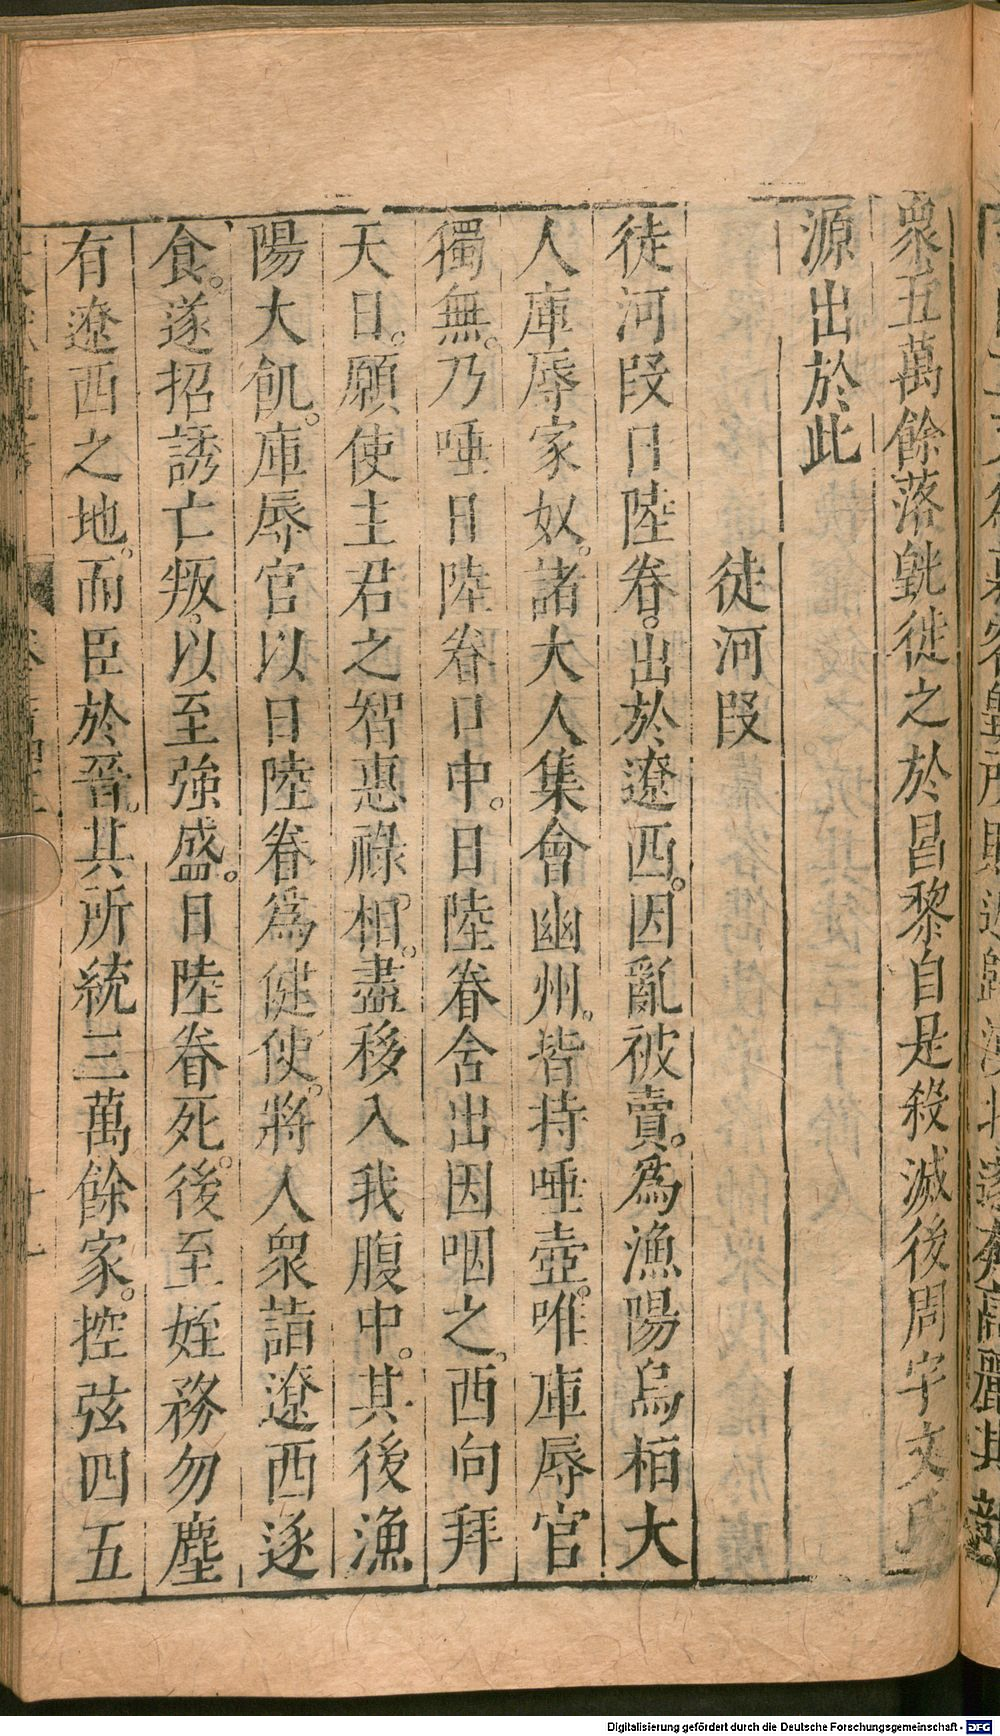 衆五萬餘落皝徙之於昌黎自是殺滅後周宇文氏
源出於此
徒河叚
徒河叚日陸眷。出於遼西。因亂被賣。爲漁陽烏桓大
人庫辱家奴。諸大人集會幽州。皆持唾壺。唯庫辱官
獨無。乃唾日陸眷口中。日陸眷舍出因咽之。西向拜
天日。願使主君之智惠祿相。盡移入我腹中。其後漁
陽大飢。庫辱官以日陸眷爲健使。將人衆詣遼西逐
食。遂招誘亡叛。以至強盛。日陸眷死。後至姪務勿塵
有遼西之地。而臣於晉。其所統三萬餘家。控弦四五
Digitalisierung gefördert durch die Deutsche Forschungsgemeinschaft - DFG